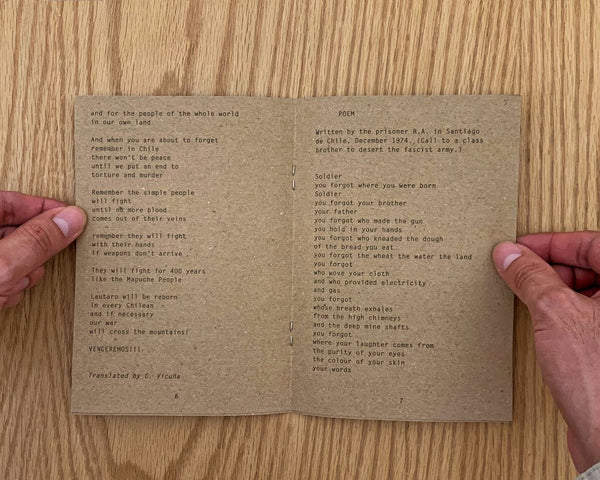 and for the people of the whole world
in our own land
And when you are about to forget
remember in Chile
there won't be peace
until we put an end to
torture and murder
Remember the simple people
will fight
until no more blood
comes out of their veins
remember they will fight
with their hands
if weapons don't arrive
They will fight for 400 years
like the Mapuche People
Lautaro will be reborn
in every Chilean
and if necessary
our war
will cross the mountains!
VENCEREMOS!!!
Translated by C. Vicuña
6
POEM
Written by the prisoner R.A. in Santiago
de Chile, December 1974. (Call to a class
brother to desert the fascist army.)
Soldier
you forgot where you were born
Soldier
you forgot your brother
your father
you forgot who made the gun
you hold in your hands
you forgot who kneaded the dough
of the bread you eat
you forgot the wheat the water the land
you forgot
who wove your cloth
and who provided electricity
and gas
you forgot
whose breath exhales
from the high chimneys
and the deep mine shafts
you forgot
where your laughter comes from
the purity of your eyes
the colour of your skin
your words
7